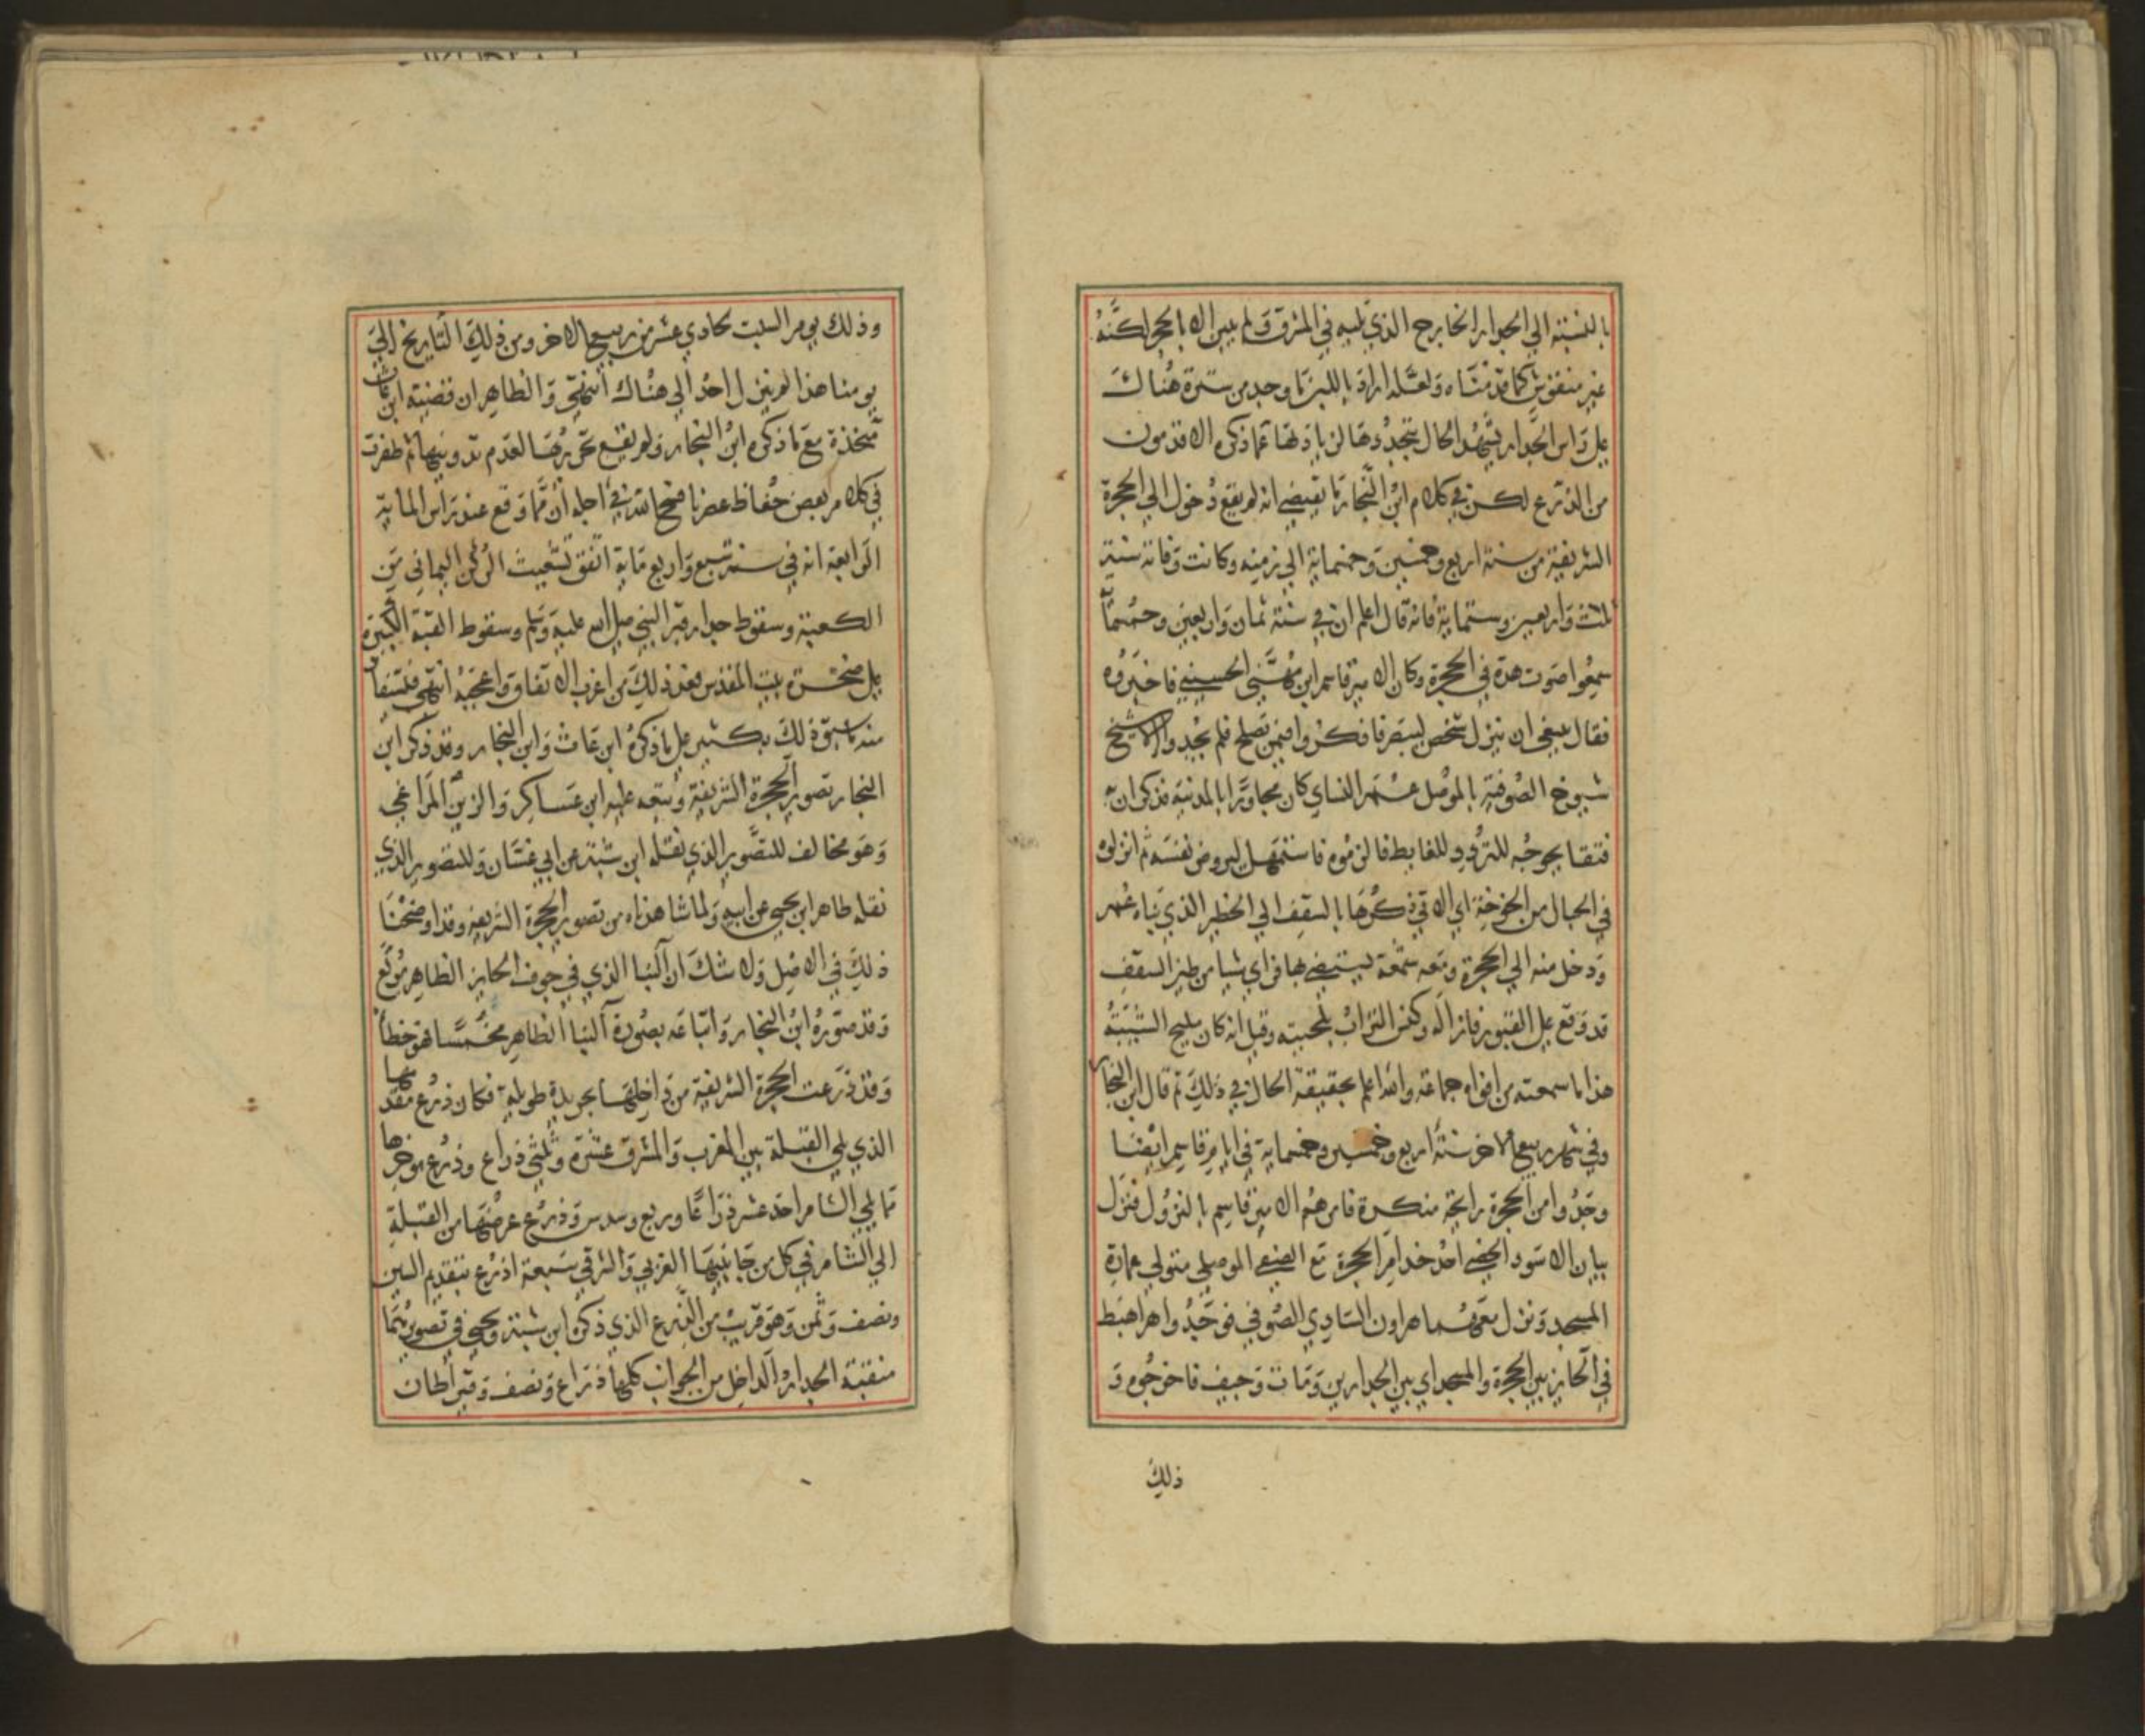 بالنسبة الي الجدار الخارج الذي يليه في المشرق ولم يبن الا بالحجر لكنه
غير منقوش كما قدمناه ولعله اراد بالليزنا وجد من سترة هناك
علي راس الجدار يشهد الحال بتجددها لزيادتها عما ذكره الاقدمون
من الذرع لكن في كلام ابن النجار ما يقتضي انه لم يقع دخول الي الحجرة
الشريفة من سنة اربع وخمسين وخمسماية الي زمنه وكانت وفاته سنة
ثلاث واربعين وستماية فانه قال اعلم ان في سنة ثمان واربعين وخمسماية
سمعوا صوت هدة في الحجرة وكان الامير قاسم ابن مهني الحسيني فاخبروه
فقال ينبغي ان ينزل شخص ليبصر فافكروا فيمن يصلح فلم يجدوا الا شيخ
شيوخ الصوفية بالموصل عمر النساي كان مجاورا بالمدينة فذكر ان به
فتقا يحوجه للتردد للغايط فالزموه فاستمهل ليروض نفسه ثم انزلوه
في الحبال من الخوخة اي الاتي ذكرها بالسقف الي الحظير الذي بناه عمر
ودخل منه الي الحجرة ومعه شمعة يستضي بها فراي شيا من طين السقف
قد وقع علي القبور فازاله وكنس التراب بلحيته وقيل انه كان مليح الشيبة
هذا ما سمعته من افواه جماعة والله اعلم بحقيقة الحال في ذلك ثم قال ابن النجار
وفي شهر ربيع الاخر سنة اربع وخمسين وخمسماية في ايام قاسم ايضا
وجدوا من الحجرة رايحة منكرة فامرهم الامير قاسم بالنزول فنزل
بيان الاسود الخصي احد خدام الحجرة مع الصفي الموصلي متولي عمارة
المسجد ونزل معهما هارون الشادي الصوفي فوجدوا هرا هبط
في الحايز بين الحجرة والمسجد اي بين الجدارين ومات وجيف فاخرجوه و
ذلك
وذلك يوم السبت الحادي عشر من ربيع الاخر ومن ذلك التاريخ الي
يومنا هذا لم ينزل احد الي هناك انتهي والظاهر ان قضية ابن عاث
متخذة مع ما ذكره ابن النجار ولم يقع تحريرها لعدم تدوينها ثم ظفرت
في كلام بعض حفاظ عصرنا فسح الله في اجله ان مما وقع عند راس الماية
الرابعة انه في سنة سبع واربع ماية اتفق تشعيث الركن اليماني من
الكعبة وسقوط جدار قبر النبي صلي الله عليه وسلم وسقوط القبة الكبيرة
علي صخرة بيت المقدس فعد ذلك من اغرب الاتفاق واعجبه انتهي فلستفاد
منه سبق ذلك بكثير علي ما ذكره ابن عاث وابن النجار وقد ذكر ابن
النجار تصوير الحجرة الشريفة وتبعه عليه ابن عساكر والزين المراغي
وهو مخالف للتصوير الذي نقله ابن شبة عن ابي غسان وللتصوير الذي
نقله طاهر ابن يحيي عن ابيه ولما شاهدناه من تصوير الحجرة الشريفة وقد اوضحنا
ذلك في الاصل ولا شك ان البنا الذي في جوف الحايز الظاهر مربع
وقد صوره ابن النجار واتباعه بصورة البنا الظاهر مخمسا فهو خطأ
وقد ذرعت الحجرة الشريفة من داخلها بجريدة طويلة فكان ذرع مقدمها
الذي يلي القبلة بين المغرب والمشرق عشرة وثلثي ذراع وذرع موخرها
مما يلي الشام احد عشر ذراعا وربع وسدس وذرع عرضها من القبلة
الي الشام في كل من جانبيها الغربي والشرقي سبعة اذرع بتقديم السين
ونصف وثمن وهو قريب من الذرع الذي ذكره ابن شبة ويحيي في تصويرهما
منقبة الجدار الداخل من الجوانب كلها ذراع ونصف وقيراطان